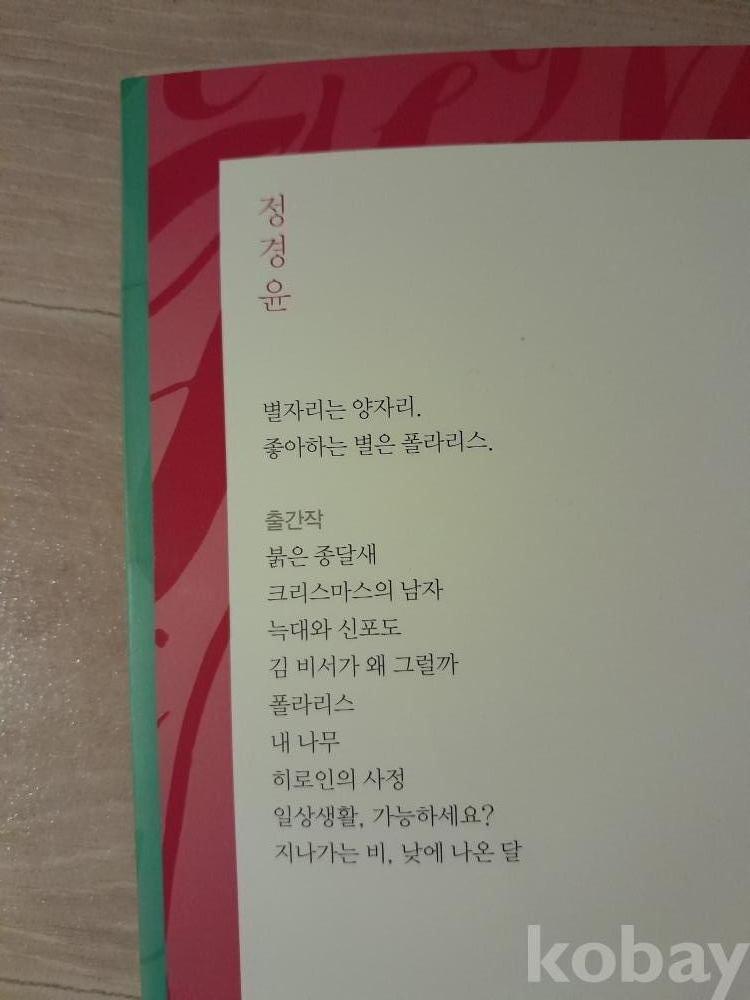 정경윤
별자리는 양자리.
좋아하는 별은 폴라리스.
출간작
붉은 종달새
크리스마스의 남자
늑대와 신포도
김 비서가 왜 그럴까
폴라리스
내 나무
히로인의 사정
일상생활, 가능하세요?
지나가는 비, 낮에 나온 달
kobay